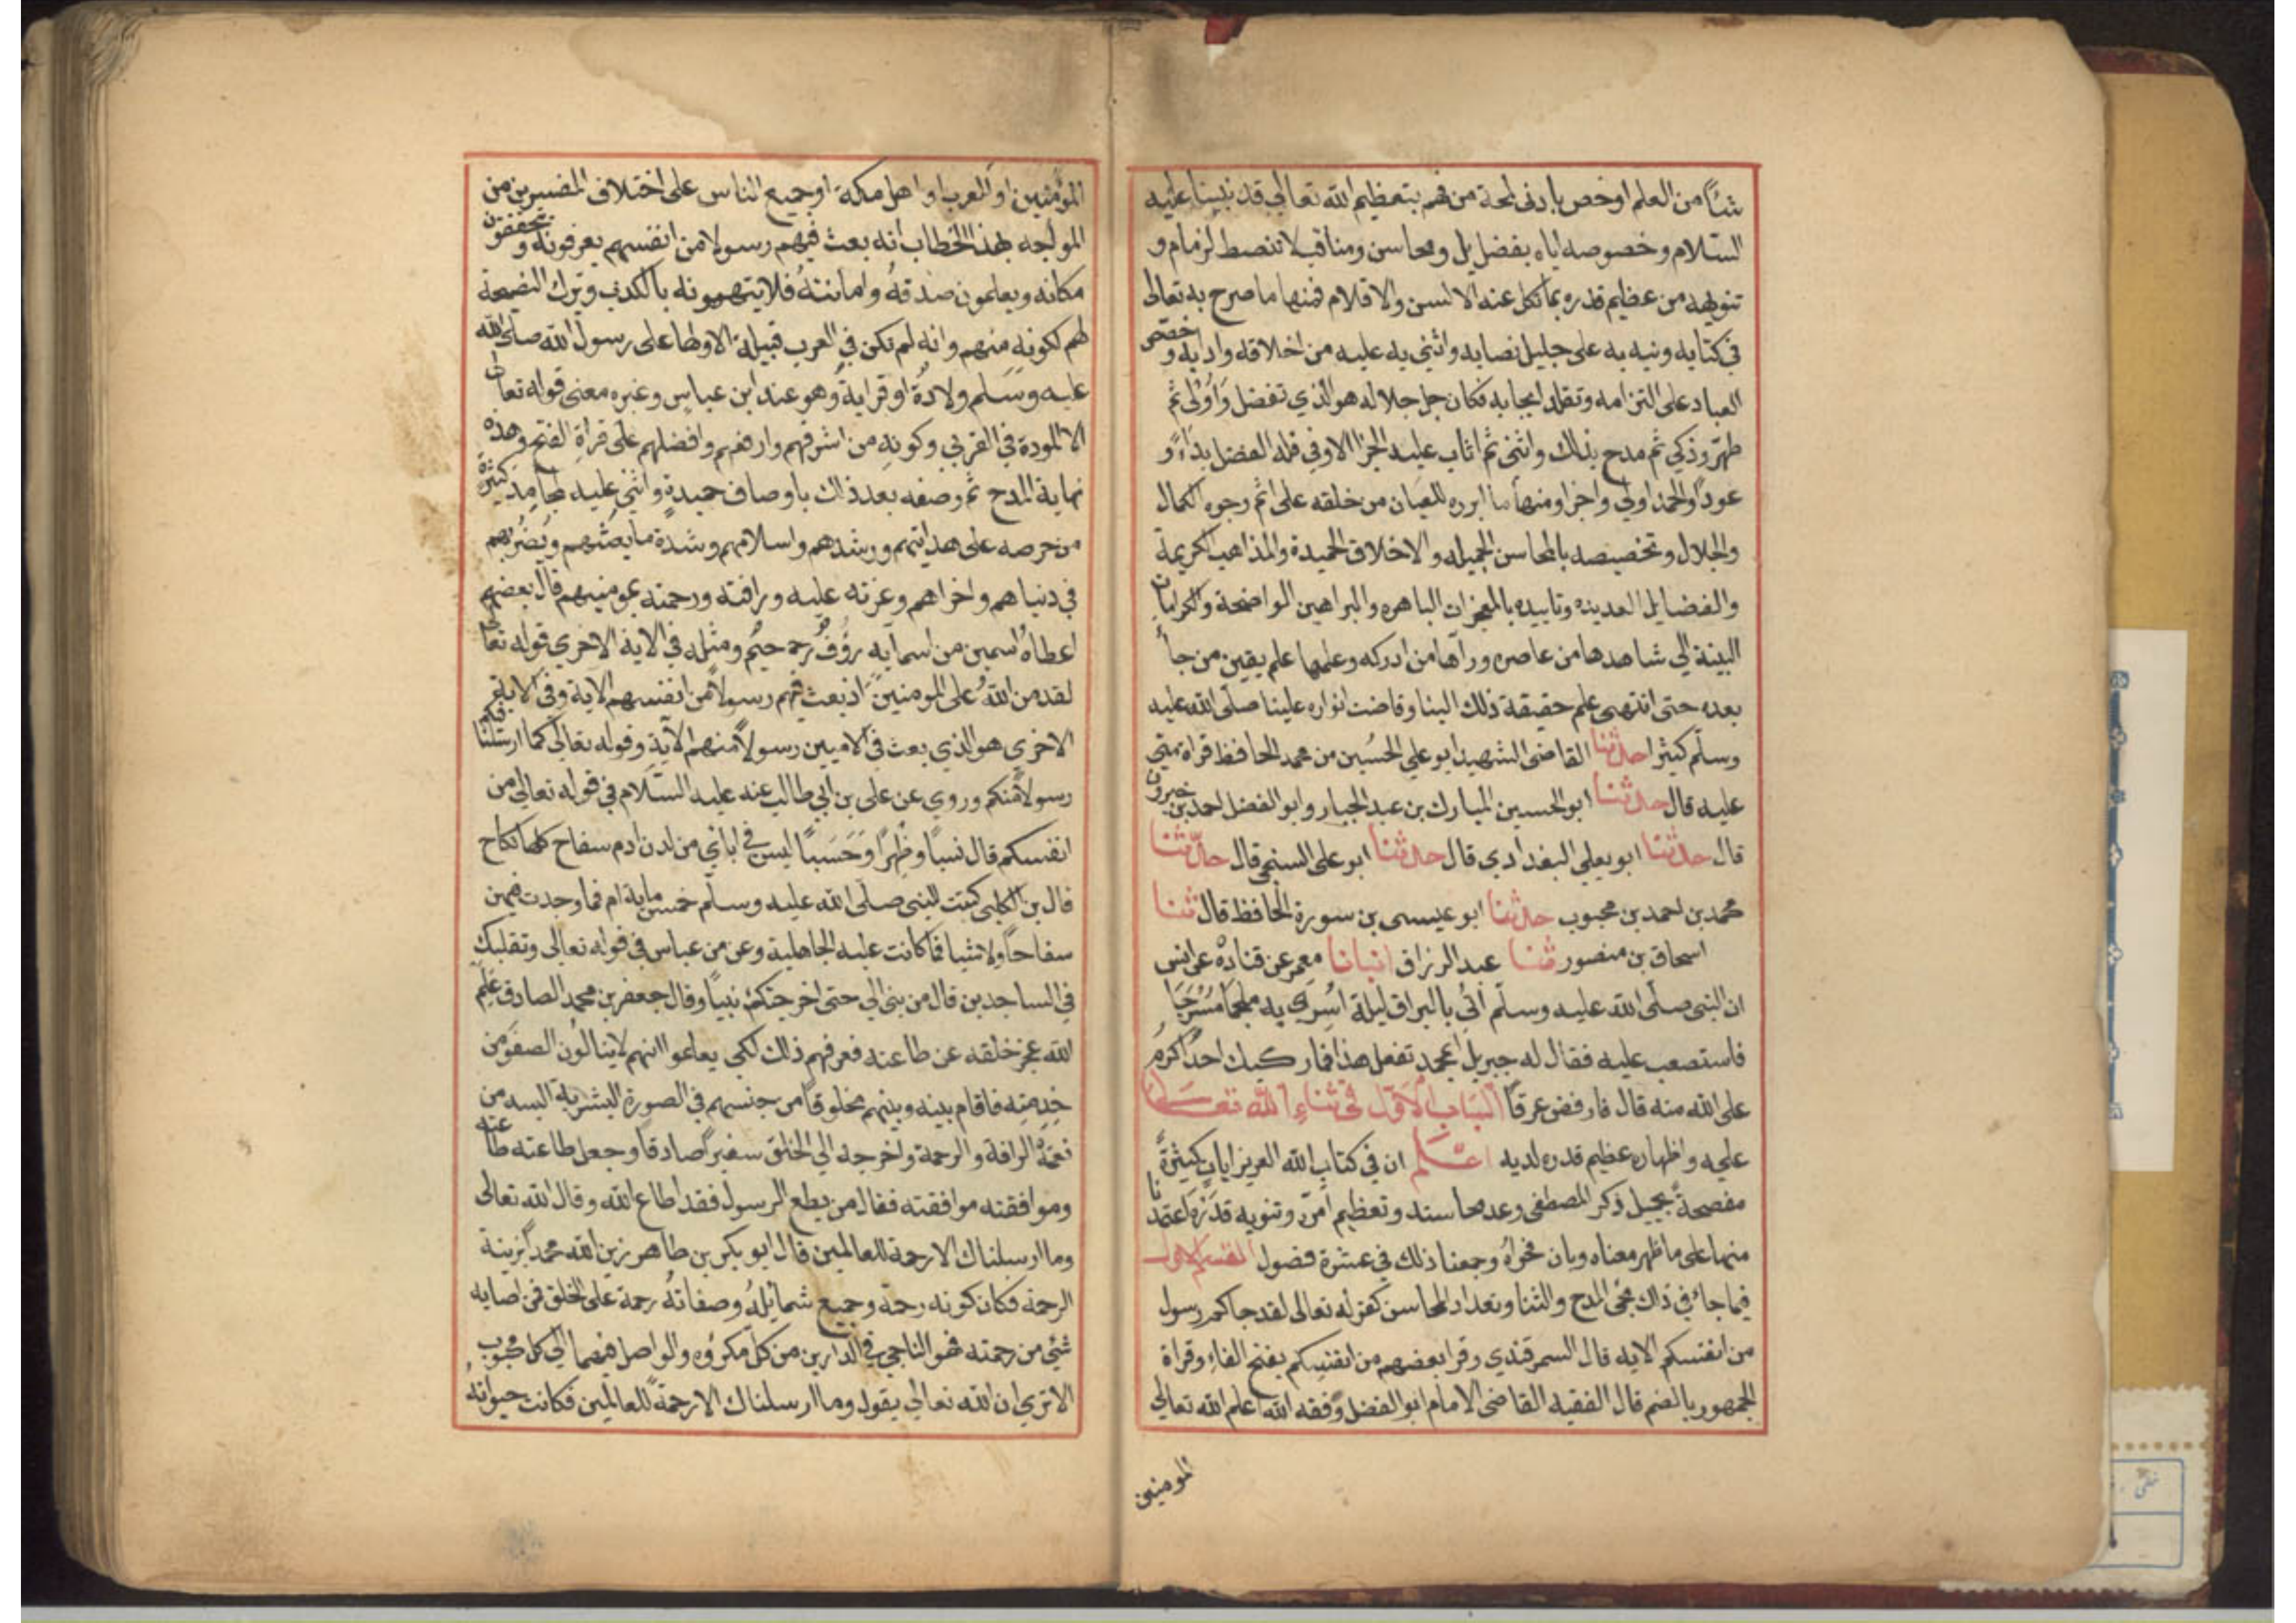 شيأ من العلم اوخص بادنى لمحة من فهم بتعظيم الله تعالى قدر نبينا عليه
السلام وخصوصه اياه بفضايل ومحاسن ومناقب لا تنضبط لزمام و
تنويهه من عظيم قدره بما تكل عنه الالسن والاقلام فمنها ما صرح به تعالى
في كتابه ونبه به على جليل نصابه واثنى به عليه من اخلاقه وادابه وحض
العباد على التزامه وتقلد ايجابه فكان جل جلاله هو الذي تفضل واولى ثم
طهر وزكي ثم مدح بذلك واثنى ثم اثاب عليه الجزا الاوفي فله الفضل بداءً و
عوداً والحمد اولي واخرا ومنها ما ابرزه للعيان من خلقه على اتم وجوه الكمال
والجلال وتخصيصه بالمحاسن الجميله والاخلاق الحميدة والمذاهب الكريمة
والفضايل العديده وتاييده بالمعجزات الباهره والبراهين الواضحة والكرامات
البينة الي شاهدها من عاصره ورآها من ادركه وعلمها علم يقين من جاأ
بعده حتى انتهى علم حقيقة ذلك الينا وفاضت انواره علينا صلى الله عليه
وسلم كثيرا حدثنا القاضى الشهيد ابو علي الحسين من محمد الحافظ قراة منى
عليه قال حدثنا ابو الحسين المبارك بن عبد الجبار وابو الفضل احمد بن خيرون
قال حدثنا ابو يعلي البغدادي قال حدثنا ابو على السنجى قال حدثنا
محمد بن احمد بن محبوب حدثنا ابو عيسى بن سورة الحافظ قال ثنا
اسحاق بن منصور ثنا عبد الرزاق انبانا معمر عن قتاده عن انس
ان النبى صلى الله عليه وسلم اُتي بالبراق ليلة اُسري به ملجما مسرجا
فاستصعب عليه فقال له جبريل ابمحمد تفعل هذا فما ركبك احد اكرم
على الله منه قال فارفض عرقا الباب الاول في ثناء الله تعالى
عليه واظهاره عظيم قدره لديه اعلم ان في كتاب الله العزيز ايات كثيرة
مفصحة بجميل ذكر المصطفى وعد محاسنه وتعظيم امره وتنويه قدره اعتمدنا
منها على ما ظهر معناه وبان فحواه وجمعنا ذلك في عشرة فصول القسم الاول
فيما جائ في ذاك مجي المدح والثنا وتعداد المحاسن كقوله تعالى لقد جاكم رسول
من انفسكم الايه قال السمرقندي وقرا بعضهم من انفسكم بفتح الفاء وقراة
الجمهور بالضم قال الفقيه القاضى الامام ابو الفضل وفقه الله اعلم الله تعالي
المومنين
المؤمنين او العرب او اهل مكة او جميع الناس على اختلاف المفسرين من
المواجه بهذا الخطاب انه بعث فيهم رسولا من انفسهم يعرفونه ويتحققون
مكانه ويعلمون صدقه وامانته فلا يتهمونه بالكذب وترك النصيحة
لهم لكونه منهم وانه لم تكن في العرب قبيلة الا ولها على رسول الله صلى الله
عليه وسلم ولادة او قرابة وهو عند ابن عباس وغيره معنى قوله تعالى
الا المودة في القربي وكونه من اشرفهم وارفعهم وافضلهم على قراة الفتح وهذه
نهاية المدح ثم وصفه بعد ذاك باوصاف حميدة واثني عليه بمحامد كثيرة
من حرصه على هدايتهم ورشدهم واسلامهم وشدة ما يعنتهم ويضر بهم
في دنياهم واخراهم وعزته عليه ورافته ورحمته بمومنيهم قال بعضهم
اعطاه اسمين من اسمايه رؤف رحيم ومثله في الاية الاخري قوله تعالى
لقد من الله على المومنين اذ بعث فيهم رسولا من انفسهم الاية وفي الاية
الاخري هو الذي بعث في الاميين رسولا منهم الاية وقوله تعالى كما ارسلنا فيكم
رسولا منكم وروي عن على بن ابي طالب عنه عليه السلام في قوله تعالي من
انفسكم قال نسبا وظهرا وحسبا ليس في اباني من لدن ادم سفاح كلها نكاح
قال بن الكلبى كتبت للنبى صلى الله عليه وسلم خمس ماية ام فما وجدت فيهن
سفاحا ولا شيا مما كانت عليه الجاهلية وعن من عباس في قوله تعالى وتقلبك
في الساجدين قال من نبى الي حتى اخرجتك نبيا وقال جعفر بن محمد الصادق علم
الله عجز خلقه عن طاعته فعرفهم ذلك لكي يعلموا انهم لا ينالون الصفو من
خدمته فاقام بينه وبينهم مخلوقا من جنسهم في الصورة البشرية البسه من
نعته الرافة والرحمة واخرجه الي الخلق سفيرا صادقا وجعل طاعته طاعته
وموافقته موافقته فقال من يطع الرسول فقد اطاع الله وقال الله تعالى
وما ارسلناك الا رحمة للعالمين قال ابو بكر بن طاهر زين الله محمدا بزينة
الرحمة فكان كونه رحمة وجميع شمائله وصفاته رحمة على الخلق فمن اصابه
شئ من رحمته فهو الناجى في الدارين من كل مكروه والواصل فيهما الي كل محبوب
الا تري ان الله تعالي يقول وما ارسلناك الا رحمة للعالمين فكانت حيوته